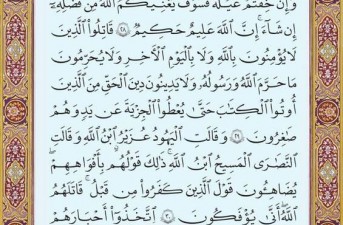 وَإِنْ خِفْتُمْ عَيْلَةً فَسَوْفَ يُغْنِيكُمُ اللَّهُ مِن فَضْلِهِ
إِن شَاءَ ۚ إِنَّ اللَّهَ عَلِيمٌ حَكِيمٌ ٢٨ قَاتِلُوا الَّذِينَ
لَا يُؤْمِنُونَ بِاللَّهِ وَلَا بِالْيَوْمِ الْآخِرِ وَلَا يُحَرِّمُونَ
مَا حَرَّمَ اللَّهُ وَرَسُولُهُ وَلَا يَدِينُونَ دِينَ الْحَقِّ مِنَ الَّذِينَ
أُوتُوا الْكِتَابَ حَتَّىٰ يُعْطُوا الْجِزْيَةَ عَن يَدٍ وَهُمْ
صَاغِرُونَ ٢٩ وَقَالَتِ الْيَهُودُ عُزَيْرٌ ابْنُ اللَّهِ وَقَالَتِ
النَّصَارَى الْمَسِيحُ ابْنُ اللَّهِ ۖ ذَٰلِكَ قَوْلُهُم بِأَفْوَاهِهِمْ ۖ
يُضَاهِئُونَ قَوْلَ الَّذِينَ كَفَرُوا مِن قَبْلُ ۚ قَاتَلَهُمُ
اللَّهُ ۚ أَنَّىٰ يُؤْفَكُونَ ٣٠ اتَّخَذُوا أَحْبَارَهُمْ